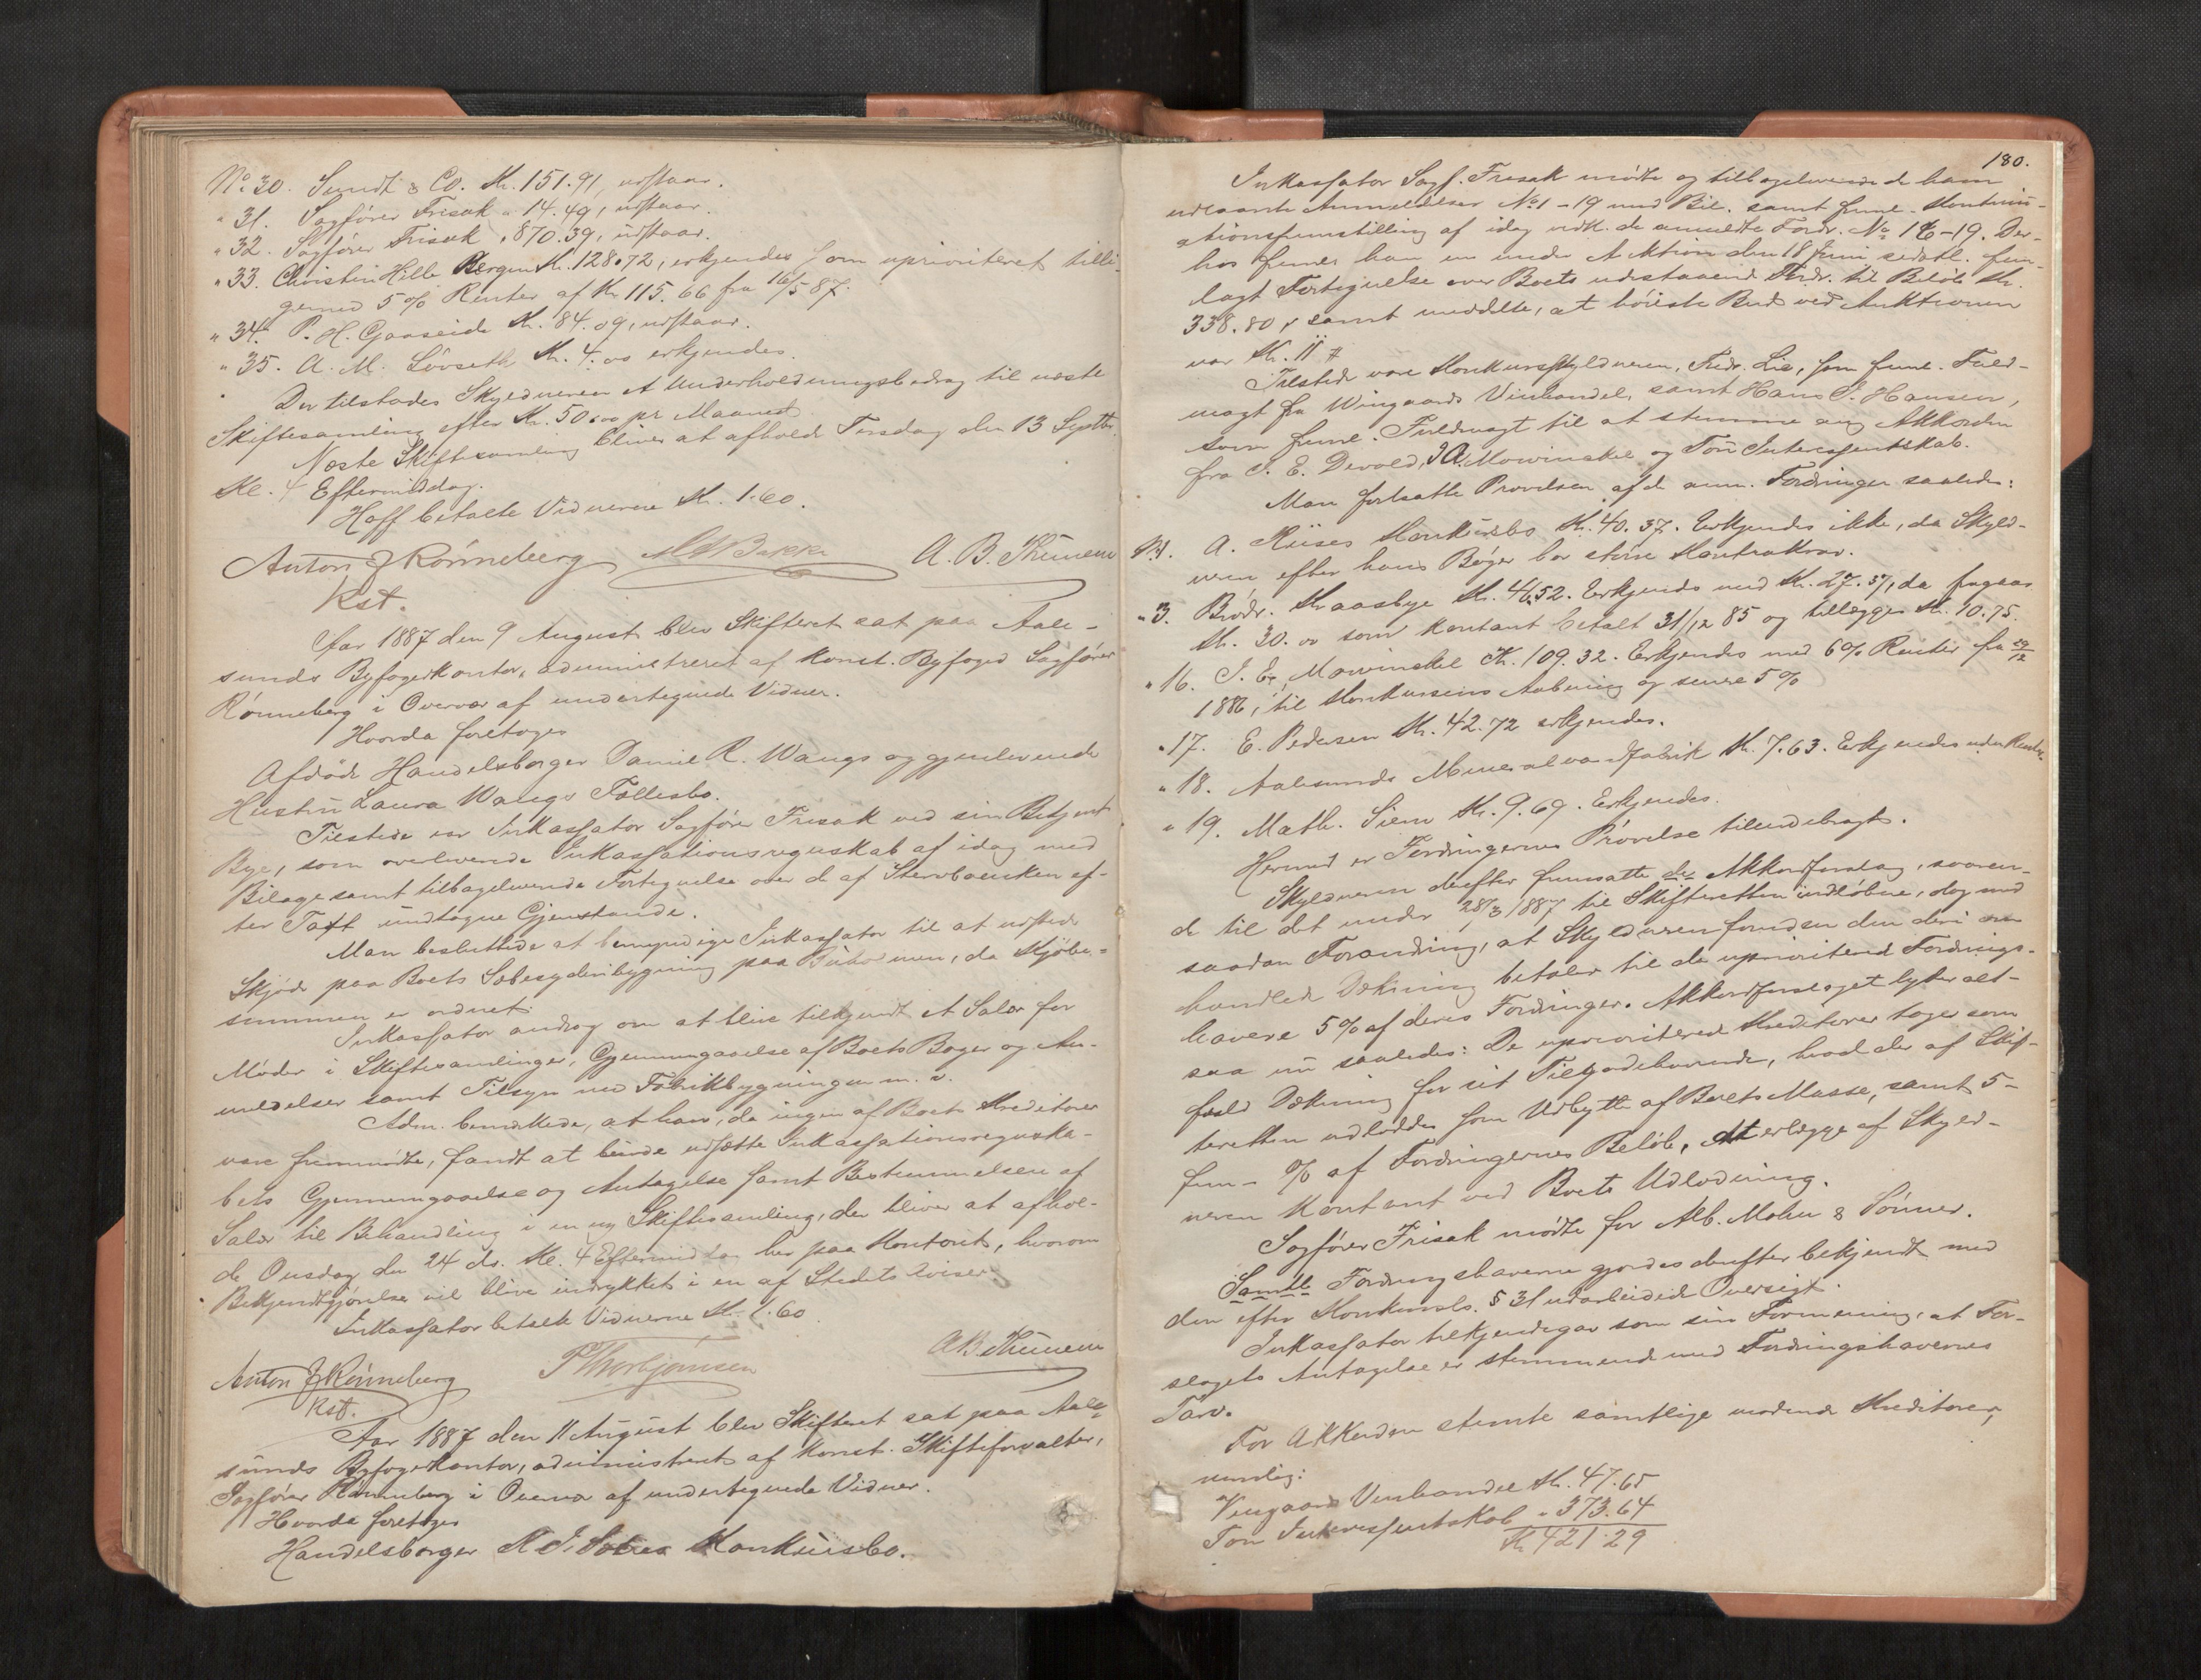 No 30. Sundt & Co. Kr. 151.91, udstaar.
" 31. Sagfører Frisak " 14.49, udstaar.
" 32. Sagfører Frisak " 870.39, udstaar.
" 33. Christin Hille Bergen Kr. 128.72, erkjendes som uprioriteret tilli-
gemed 5% Renter af Kr 115.66 fra 16/5 87.
" 34. P. H. Gaaseide Kr. 84.09, udstaar.
" 35. A. M. Løvseth Kr. 4.00 erkjendes.
Der tilstodes Skyldneren et Underholdningsbidrag til næste
Skiftesamling efter Kr. 50.00 pr Maaned.
Næste Skiftesamling bliver at afholde Tirsdag den 13 Septbr.
Kl. 4 Eftermiddag.
Hoff betalte Vidnerne Kr. 1.60.
Anton J Rønneberg A. B. Thunem
Kst.
Aar 1887 den 9 August blev Skifteret sat paa Aale-
sunds Byfogedkontor, administreret af konst. Byfoged Sagfører
Rønneberg i Overvær af undertegnede Vidner.
Hvorda foretoges
Afdøde Handelsborger Daniel R. Wangs og gjenlevende
Hustru Laura Wangs Fællesbo.
Tilstede var Inkassator Sagfører Frisak ved sin Betjent
Bye, som overleverede Inkassationsregnskab af idag med
Bilage samt tilbageleverede Fortegnelse over de af Stervboenken ef-
ter Taxt undtagne Gjenstande.
Man besluttede at bemyndige Inkassator til at udstede
Skjøde paa Boets Sæbesyderibygning paa , da Kjøbe-
summen er ordnet.
Inkassator androg om at blive tilkjendt et Salær for
Møder i Skiftesamlinger, Gjennemgaaelse af Boets Bøger og An-
meldelser samt Tilsyn med Fabrikbygningen m. v.
Adm. bemærkede, at han, da ingen af Boets Kreditorer
vare fremmødte, fandt at burde udsætte Inkassationsregnska-
bets Gjennemgaaelse og Antagelse samt Bestemmelsen af
Salær til Behandling i en ny Skiftesamling, der bliver at afhol-
de Onsdag den 24 ds. Kl. 4 Eftermiddag her paa Kontoret, hvorom
Bekjendtgjørelse vil blive indrykket i en af Stedets Aviser.
Inkassator betalte Vidnerne Kr. 1.60
Anton J Rønneberg P Thorbjørnsen A B Thunem
Kst.
Aar 1887 den 11 August blev Skifteret sat paa Aale-
sunds Byfogedkontor, administreret af konst. Skifteforvalter,
Sagfører Rønneberg i Overvær af undertegnede Vidner.
Hvorda foretoges
Handelsborger K. J. Konkursbo.
180.
Inkassator Sagf. Frisak mødte og tilbageleverede de ham
udlaante Anmeldelser No 1-19 med Bil. samt freml. Kontinu-
ationsfremstilling af idag vedk. de anmeldte Fordr. No 16-19. Der-
hos freml. han en under Auktion den 18 Juni sidstl. frem-
lagt Fortegnelse over Boets udestaaende Fordr. til Beløb Kr.
338.80, samt meddelte, at høieste Bud ved Auktionen
var Kr. 11
Tilstede vare Konkursskyldneren, Fredr. Lie, som freml. Fuld-
magt fra Wingaards Vinhandel, samt Hans S. Hansen,
som freml. Fuldmagt til at stemme ang Akkorden
fra S. E. Devold, J A Mowinckel og Ton Interessentskab.
Man fortsatte Prøvelsen af de anm. Fordringer saaledes:
No 1. A. Kriises Konkursbo Kr. 40.37. Erkjendes ikke, da Skyld-
neren efter hans Bøger har større Kontrakrav.
" 3. Brødr. Kraasbye Kr. 46.52. Erkjendes med Kr. 27.37, da fragaar
Kr. 30.00 som kontant betalt 31/12 85 og tillægges Kr. 10.75.
" 16. J. E. Mowinckel Kr. 109.32. Erkjendes med 6% Renter fra 29/12
1886, til Konkursens Aabning og senere 5%
" 17. E. Pedersen Kr. 42.72 erkjendes.
" 18. Aalesunds Mineralvandfabrik Kr. 7.63. Erkjendes uden Renter.
" 19. Math. Siem Kr. 9.69. Erkjendes.
Hermed er Fordringernes Prøvelse tilendebragt.
Skyldneren derefter fremsatte det Akkordforslag, svaren-
de til det under 28/3 1887 til Skifteretten indløbne, dog med
saadan Forandring, at Skyldneren foruden den deri om-
handlede Dækning betaler til de uprioriterede Fordrings-
havere 5% af deres Fordringer. Akkordforslaget lyder alt-
saa nu saaledes: De uprioriterede Kreditorer tager som
fuld Dækning for sit Tilgodehavende, hvad der af Skif-
teretten udloddes som Udbytte af Boets Masse, samt 5-
fem- % af Fordringernes Beløb, at erlægge af Skyld-
neren kontant ved Boets Udlodning.
Sagfører Frisak mødte for Alb. Mohn & Sønner.
Samtl. Fordringshaverne gjordes derefter bekjendt med
den efter Konkursls. § 31 udarbeidede Oversigt.
Inkassator tilkjendegav som sin Formening, at For-
slagets Antagelse er stemmende med Fordringshavernes
Tarv.
For Akkorden stemte samtlige mødende Kreditorer,
nemlig:
Vingaards Vinhandel Kr. 47.65
Ton Interessentskab " 373.64
Kr 421.29